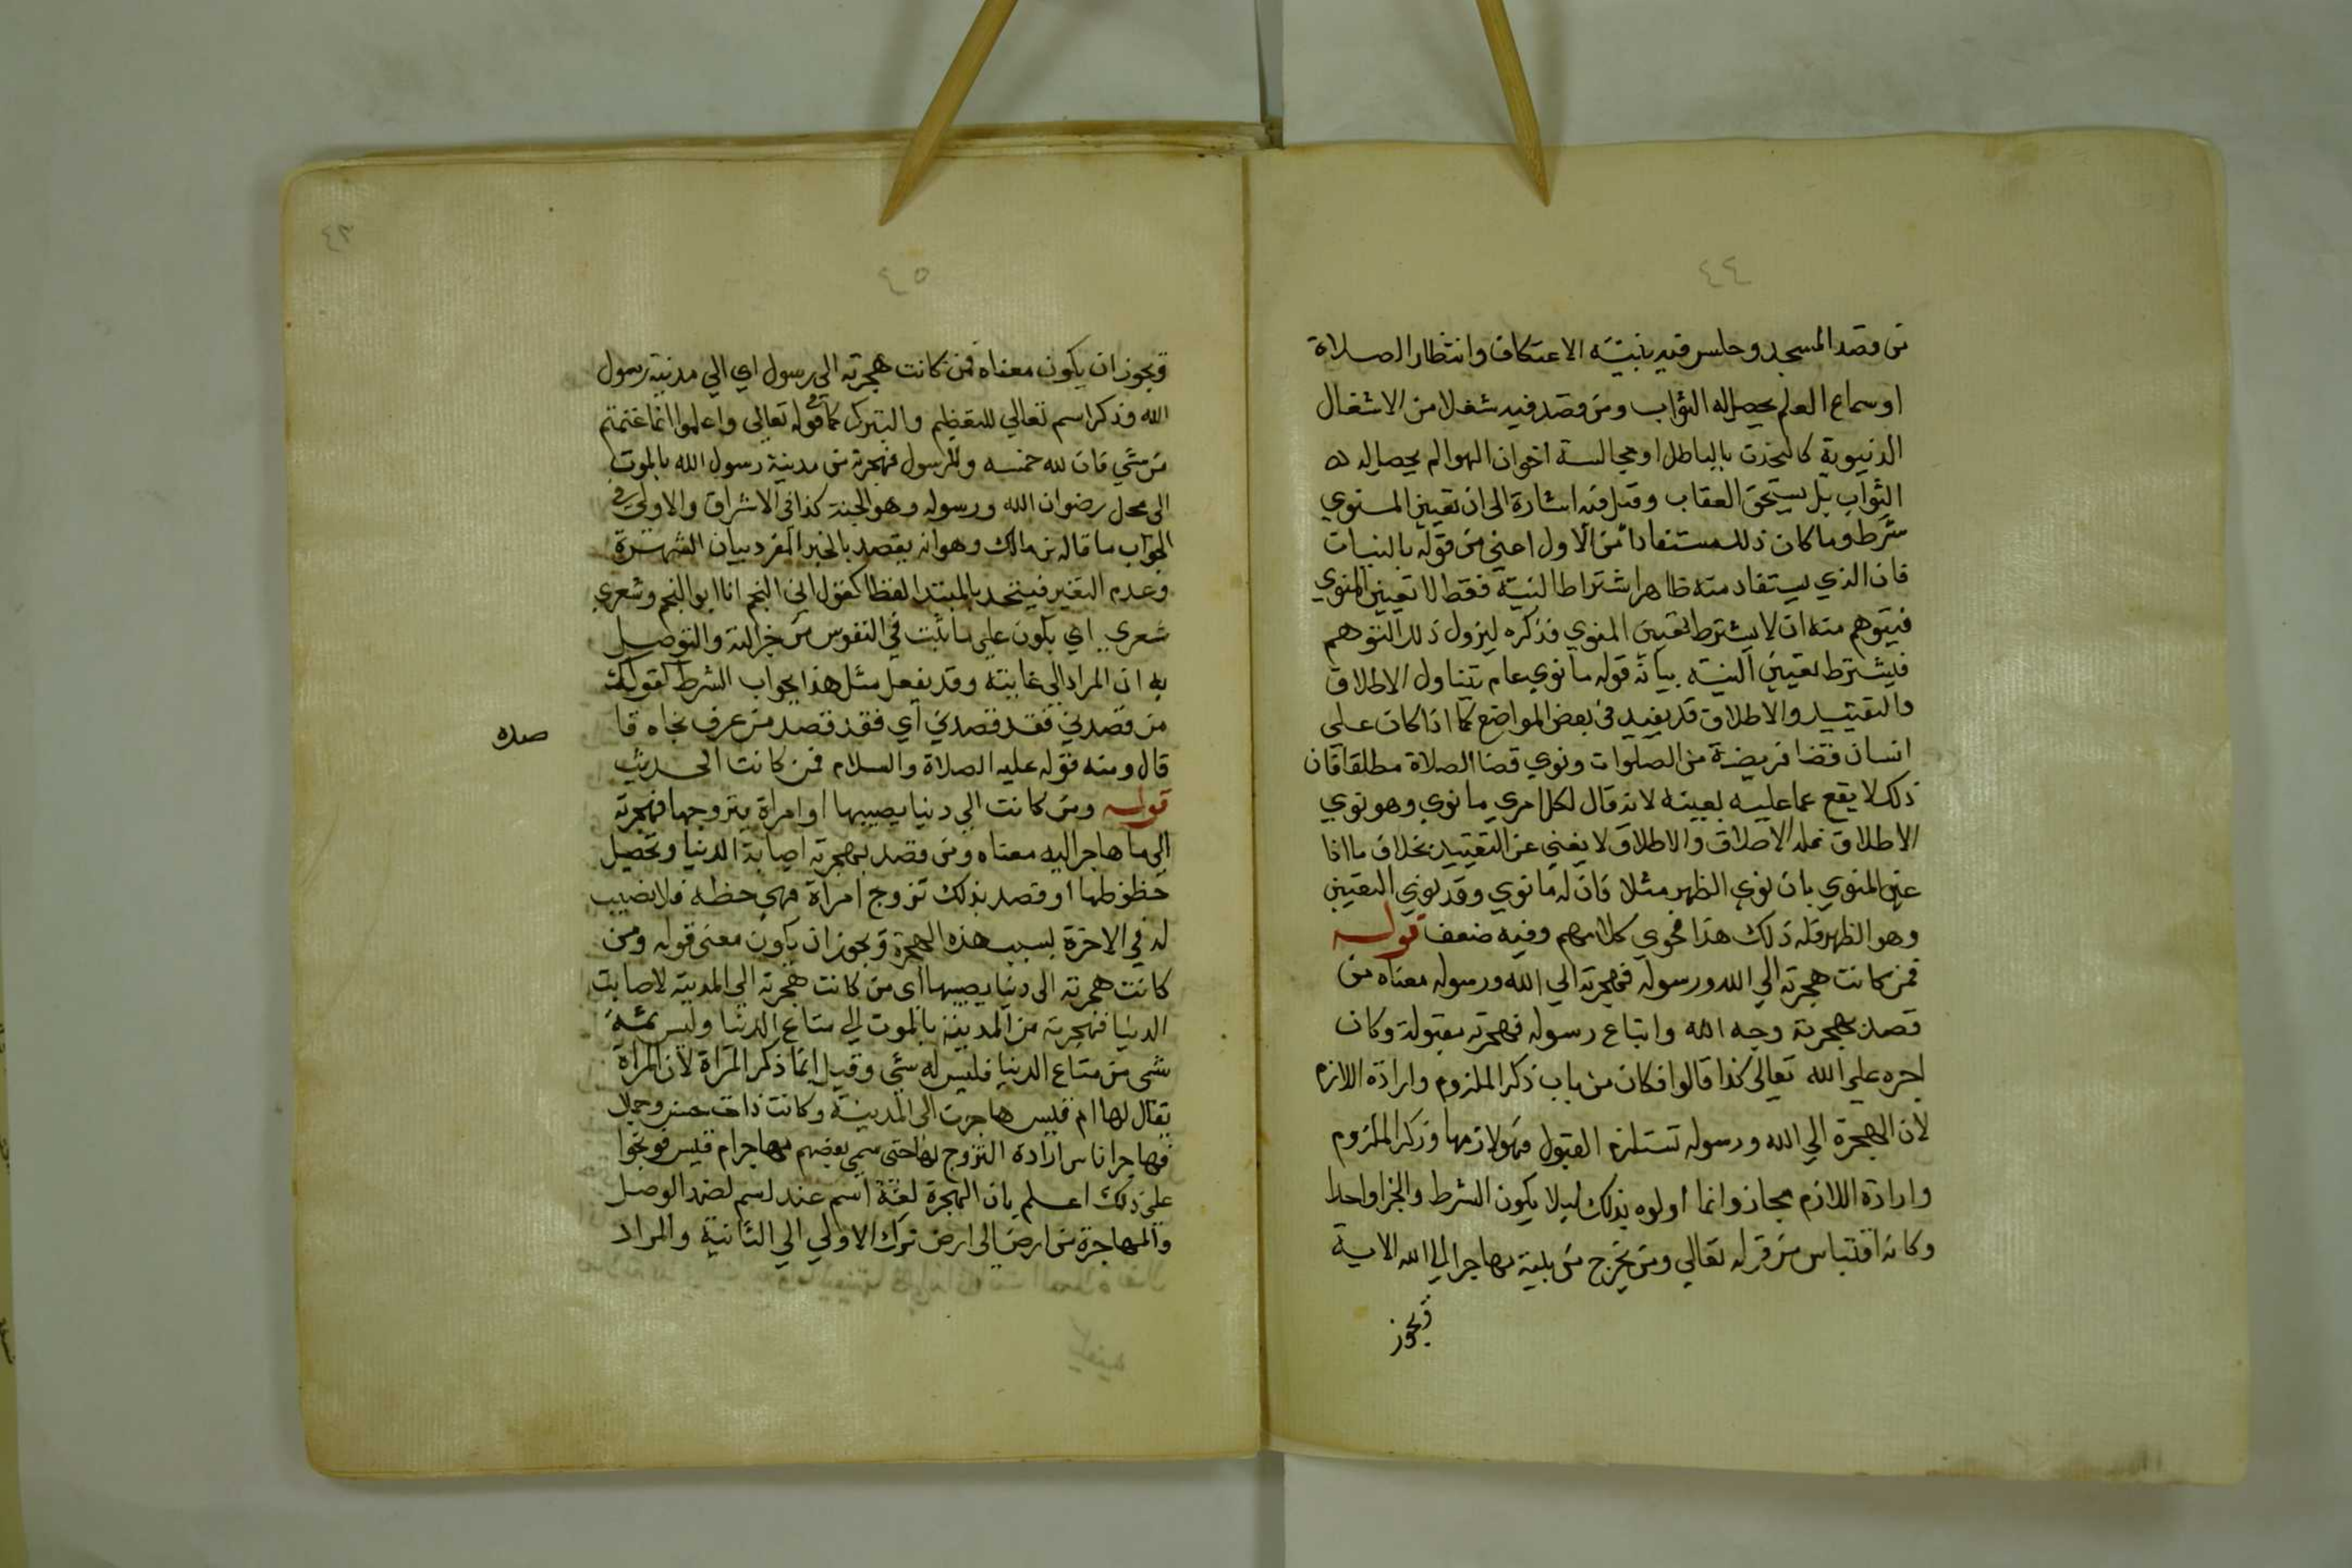 ٤٤
من قصد المسجد وجلس فيه بنية الاعتكاف وانتظار الصلاة
او سماع العلم يحصل له الثواب ومن قصد فيه شغلا من الاشغال
الدنيوية كالتحدث بالباطل او مجالسة اخوان الهوا لم يحصل له
الثواب بل يستحق العقاب وقيل فيه اشارة الى ان تعيين المنوي
شرط وما كان ذلك مستفادا من الاول اعني من قوله بالنيات
فان الذي يستفاد منه ظاهرا اشتراط النية فقط لا تعيين المنوي
فيتوهم منه ان لا يشترط تعيين المنوي فذكره ليزول ذلك التوهم
فيشترط تعيين النية بيانه قوله ما نوي عام يتناول الاطلاق
والتقييد والاطلاق قد يفيد في بعض المواضع كما اذا كان على
انسان قضا فريضة من الصلوات ونوي قضا الصلاة مطلقا فان
ذلك لا يقع عما عليه بعينه لانه قال لكل امري ما نوي وهو نوي
الاطلاق فله الاطلاق والاطلاق لا يغني عن التقييد بخلاف ما اذا
عين المنوي بان نوي الظهر مثلا فان له ما نوي وقد نوي التعيين
وهو الظهر فله ذلك هذا فحوي كلامهم وفيه ضعف قوله
فمن كانت هجرته الي الله ورسوله فهجرته الي الله ورسوله معناه من
قصد بهجرته وجه الله واتباع رسوله فهجرته مقبولة وكان
اجره علي الله تعالى كذا قالوا فكان من باب ذكر الملزوم وارادة اللازم
لان الهجرة الي الله ورسوله تستلزم القبول فهو لازمها وذكر الملزوم
وارادة اللازم مجاز وانما اولوه بذلك ليلا يكون الشرط والجزا واحدا
وكانه اقتباس من قوله تعالي ومن يخرج من بيته مهاجرا الي الله الاية
ويجوز
٤٣
٤٥
ويجوز ان يكون معناه فمن كانت هجرته الي رسول اي الي مدينة رسول
الله وذكر اسم تعالي للتعظيم والتبرك كما في قوله تعالى واعلموا انما غنمتم
من شي فان لله خمسه وللرسول فهجرته من مدينة رسول الله بالموت
الى محل رضوان الله ورسوله وهو الجنة كذا في الاشراق والاولي في
الجواب ما قاله بن مالك وهو انه يقصد بالخبر المفرد بيان الشهرة
وعدم التغير فيتحد بالمبتدا لفظا كقول ابي النجم انا ابو النجم وشعري
شعري اي يكون علي ما ثبت في النفوس من جزالته والتوصل
به ان المراد الي غايته وقد يفعل مثل هذا بجواب الشرط كقولك
من قصدني فقد قصدني اي فقد قصد من عرف نجاه قا
صده
قال ومنه قوله عليه الصلاة والسلام فمن كانت الحديث
قوله ومن كانت الي دنيا يصيبها او امراة يتزوجها فهجرته
الى ما هاجر اليه معناه ومن قصد بهجرته اصابة الدنيا وتحصيل
حظوظها او قصد بذلك تزوج امراة فهي حظه فلا نصيب
له في الاخرة بسبب هذه الهجرة ويجوز ان يكون معنى قوله ومن
كانت هجرته الى دنيا يصيبها اى من كانت هجرته الي المدينة لاصابت
الدنيا فهجرته من المدينة بالموت الي متاع الدنيا وليس ثمة
شى من متاع الدنيا فليس له شئ وقيل انما ذكر المراة لان المراة
يقال لها ام قيس هاجرت الى المدينة وكانت ذات حسن وجمال
فهاجر اناس ارادة التزوج لها حتى سمي بعضهم مهاجر ام قيس فوبخوا
على ذلك اعلم بان الهجرة لغة اسم عند اسم لضد الوصل
والمهاجرة من ارض الى ارض ترك الاولي الي الثانية والمراد